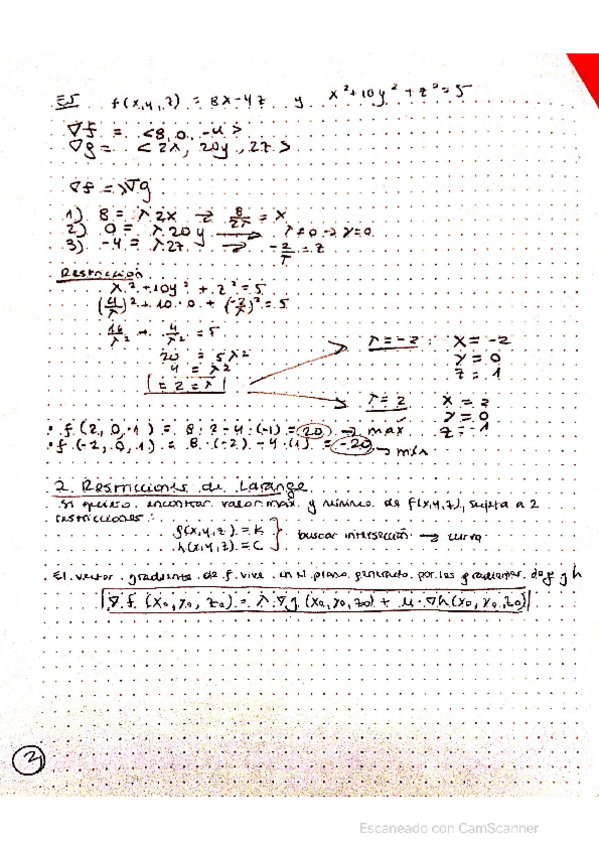 E5 f(x,y,z) = 8x-4z y x²+10y²+z²=5
∇f = <8, 0, -4>
∇g = <2x, 20y, 2z>
∇f = λ∇g
1) 8 = λ2x → 8/2λ = x
2) 0 = λ20y → λ≠0 → y=0
3) -4 = λ2z → -2/λ = z
Restricción
x²+10y²+z²=5
(4/λ)²+10·0+(-2/λ)²=5
16/λ² + 4/λ² = 5
20 = 5λ²
4 = λ²
|±2 = λ|
λ=-2 : x=-2
y=0
z=1
λ=2 x=2
y=0
z=-1
• f(2,0,-1) = 8·2-4·(-1) = 20 → máx
• f(-2,0,1) = 8·(-2)-4·(1) = -20 → mín
2. Restricciones de Larange
Si quiero encontrar valor máx y mínimo de f(x,y,z), sujeta a 2
restricciones:
g(x,y,z) = K
h(x,y,z) = C
buscar intersección → curva
El vector gradiente de f vive en el plano generado por los gradientes de g y h
∇f(x₀,y₀,z₀) = λ·∇g(x₀,y₀,z₀) + μ·∇h(x₀,y₀,z₀)
Escaneado con CamScanner